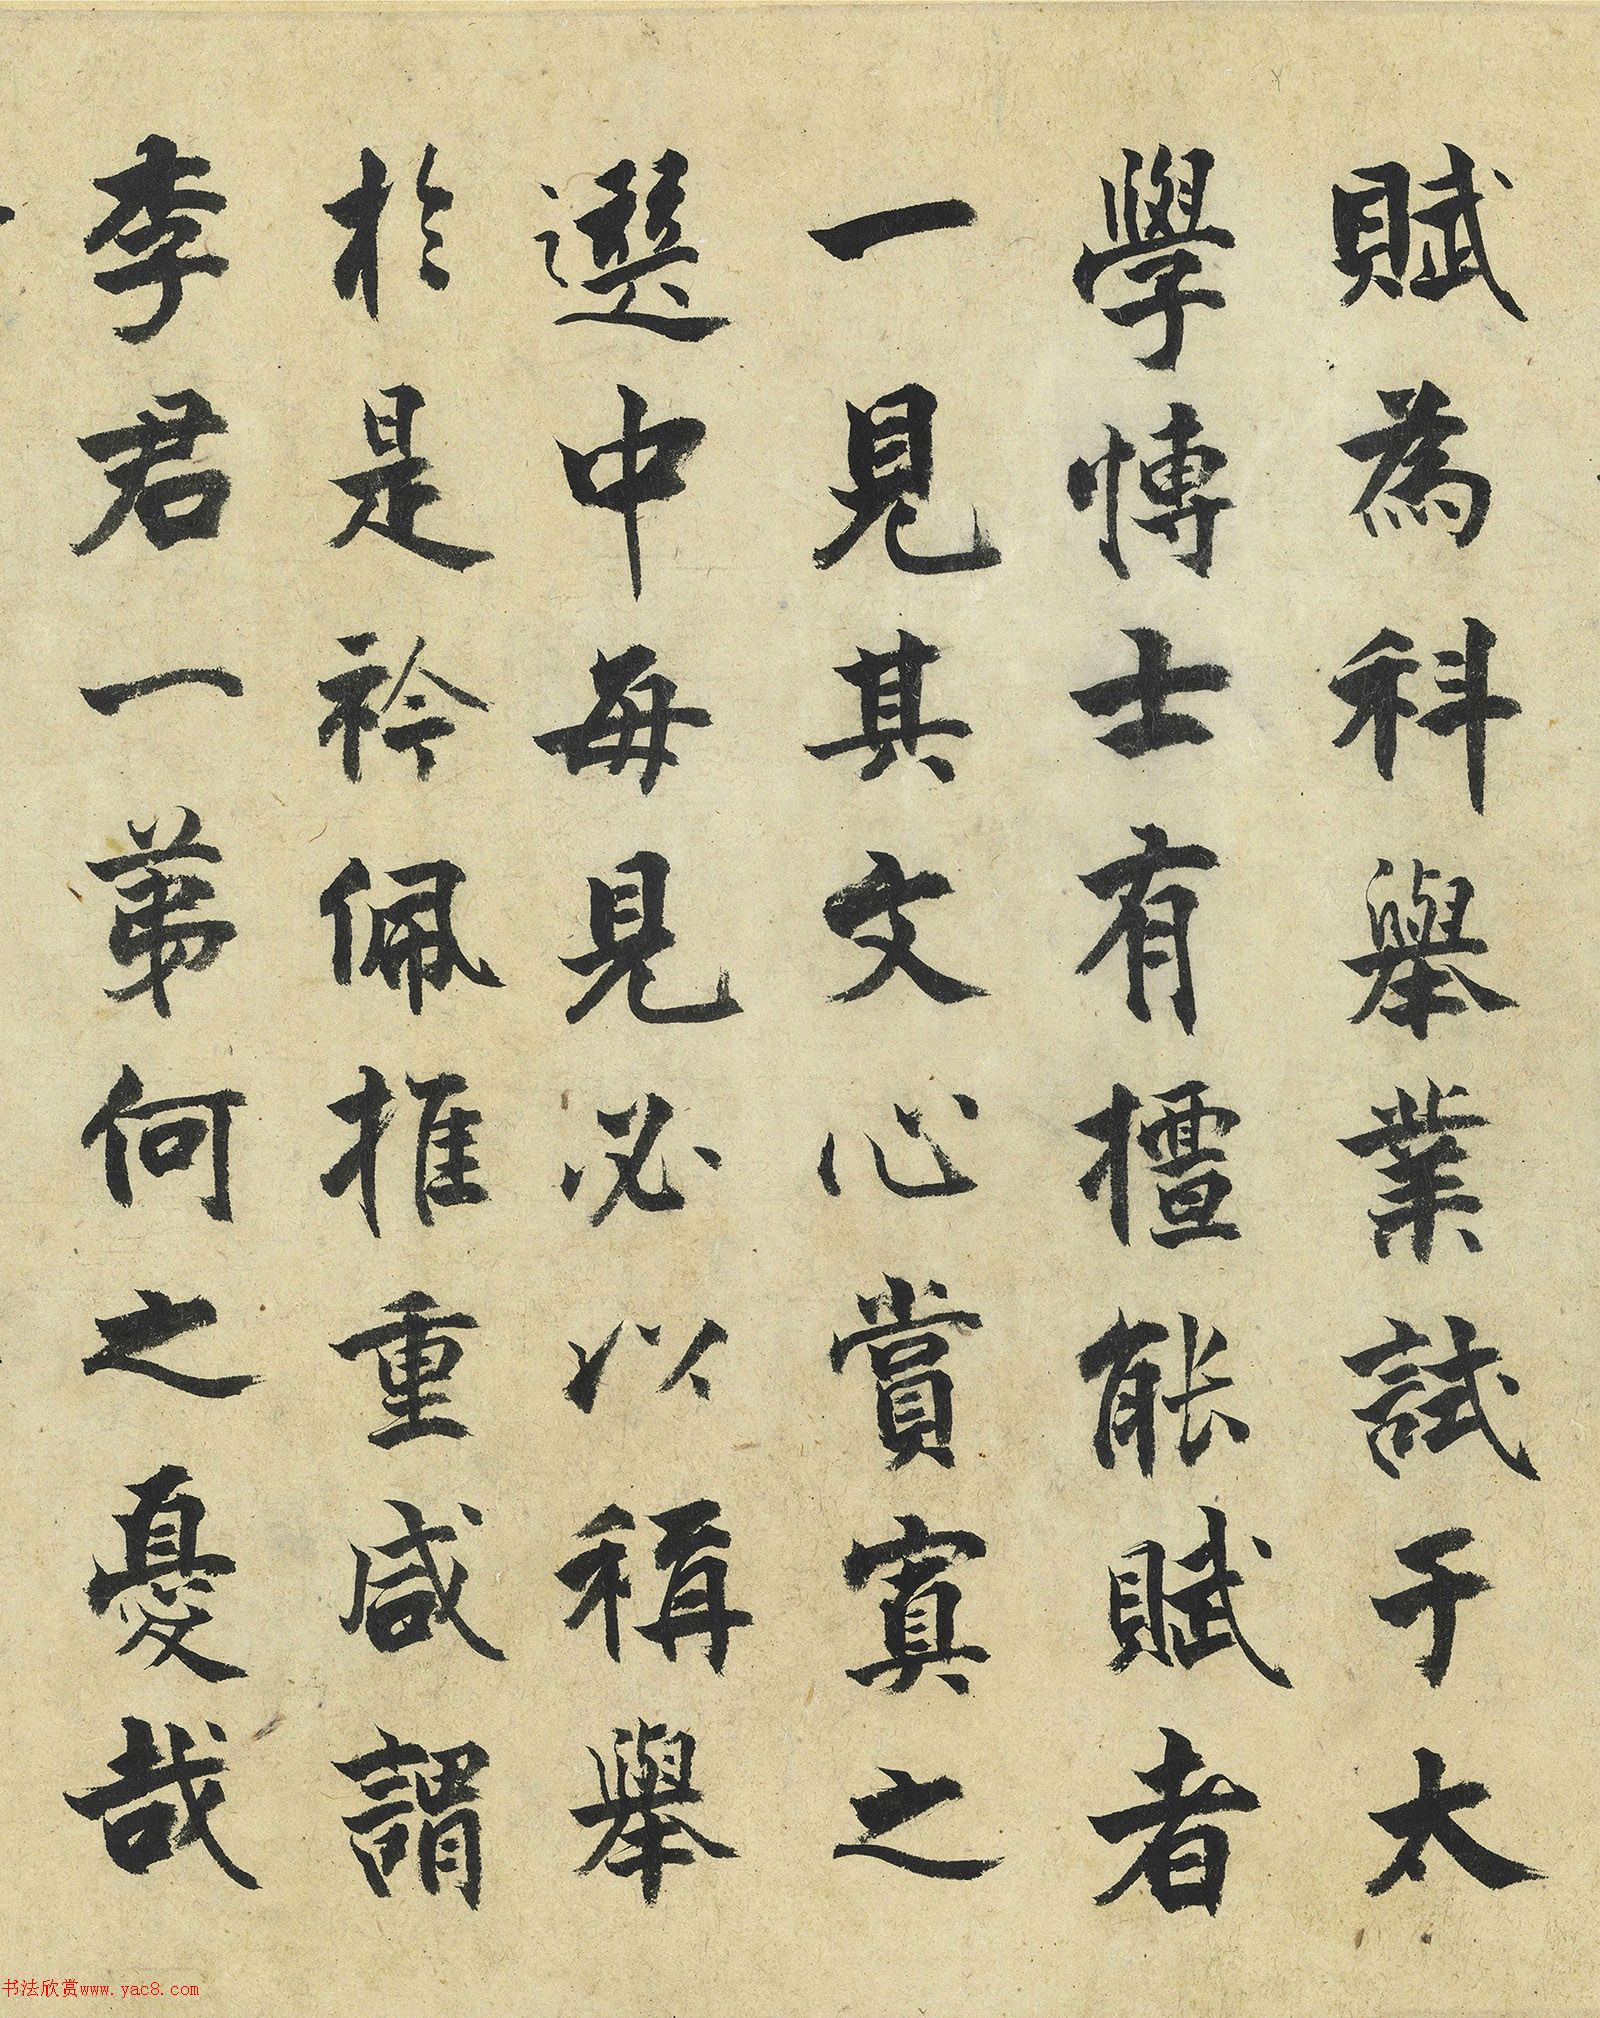 賦為科舉業試于太
學博士有擅能賦者
一見其文心賞寘之
選中每見必以稱舉
於是衿佩推重咸謂
李君一第何之憂哉
书法欣赏www.yac8.com